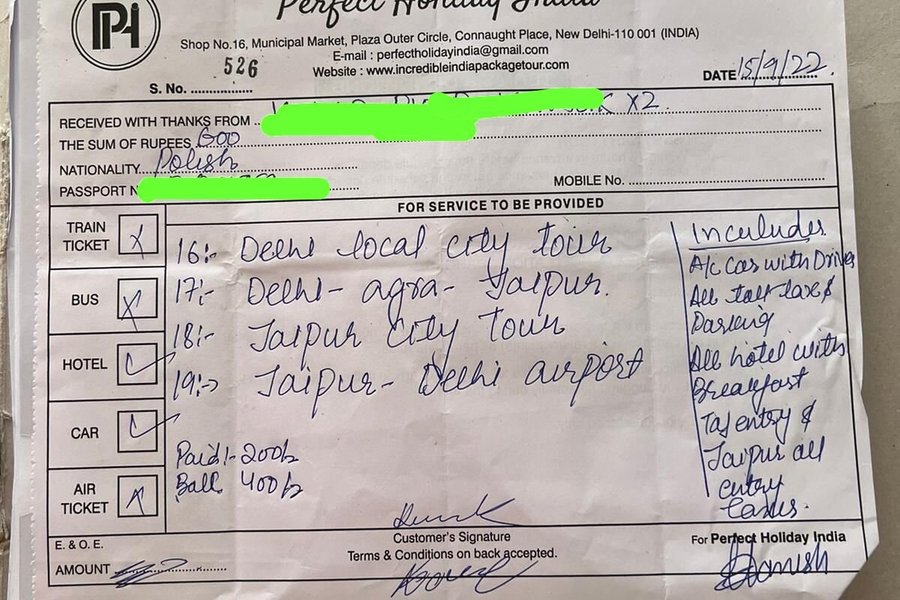 PHI
Perfect Holiday India
Shop No.16, Municipal Market, Plaza Outer Circle, Connaught Place, New Delhi-110 001 (INDIA)
E-mail : perfectholidayindia@gmail.com
Website : www.incredibleindiapackagetour.com
S. No. 526
DATE 15/9/22
RECEIVED WITH THANKS FROM X2
THE SUM OF RUPEES 600
NATIONALITY Polish
PASSPORT N
MOBILE No.
FOR SERVICE TO BE PROVIDED
TRAIN TICKET X
BUS X
HOTEL ✓
CAR ✓
AIR TICKET X
16:- Delhi local city tour
17:- Delhi- agra- Jaipur.
18:- Jaipur City Tour
19:- Jaipur- Delhi airport
Paid:- 200
Ball 400
Includes
A/c car with Driver
All toll taxes
Parking
All hotel with
Breakfast
Taj entry &
Jaipur all
entry
Customer's Signature
Terms & Conditions on back accepted.
For Perfect Holiday India
E. & O. E.
AMOUNT